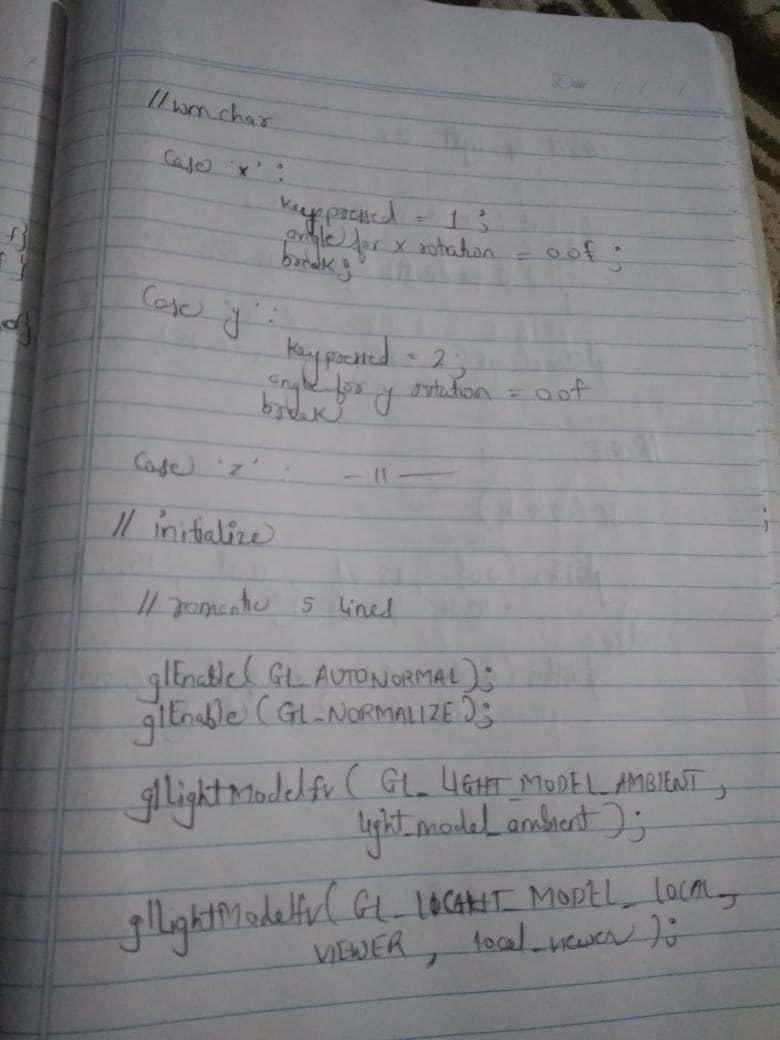 Date / / /
//wm_char
Case 'x' :
keypressed = 1 ;
angle for x rotation = 0.0f ;
break;
Case 'y' :
keypressed = 2;
angle for y rotation = 0.0f
break;
Case 'z' : —11—
// initialize
// romantic 5 lines
glEnable( GL_AUTONORMAL);
glEnable (GL_NORMALIZE);
glLightModelfv ( GL_LIGHT_MODEL_AMBIENT,
light_model_ambient );
glLightModelfv( GL_ MODEL_LOCAL_
VIEWER , local_viewer );